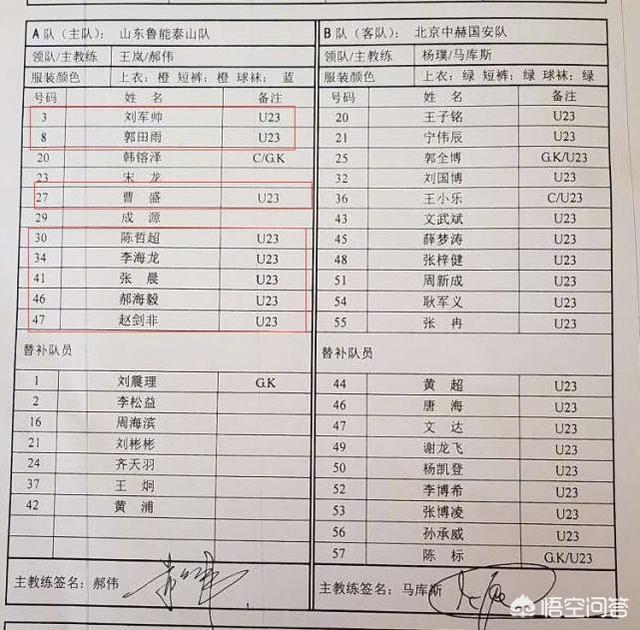 A 队（主队）： 山东鲁能泰山队 B 队（客队）： 北京中赫国安队
领队/主教练 王岚/郝伟 领队/主教练 杨璞/马库斯
服装颜色 上衣：橙 短裤：橙 球袜：蓝 服装颜色 上衣：绿 短裤：绿 球袜：绿
号码 姓 名 备注 号码 姓 名 备注
3 刘军帅 U23 20 王子铭 U23
8 郭田雨 U23 21 宁伟辰 U23
20 韩镕泽 C/G.K 25 郭全博 G.K/U23
23 宋 龙 32 刘国博 U23
27 曹 盛 U23 36 王小乐 C/U23
29 成 源 43 文武斌 U23
30 陈哲超 U23 45 薛梦涛 U23
34 李海龙 U23 48 张梓健 U23
41 张 晨 U23 51 周新成 U23
46 郝海毅 U23 54 耿军义 U23
47 赵剑非 U23 55 张 冉 U23
替补队员 替补队员
1 刘震理 G.K 44 黄 超 U23
2 李松益 46 唐 海 U23
16 周海滨 47 文 达 U23
21 刘彬彬 49 谢龙飞 U23
24 齐天羽 50 杨凯登 U23
37 王 炯 52 李博希 U23
42 黄 浦 53 张博凌 U23
56 孙承威 U23
57 陈 标 G.K/U23
主教练签名：郝伟 主教练签名：马库斯
悟空问答